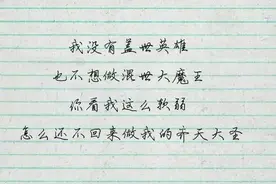 我没有盖世英雄
也不想做混世大魔王
你看我这么软弱
怎么还不回来做我的齐天大圣